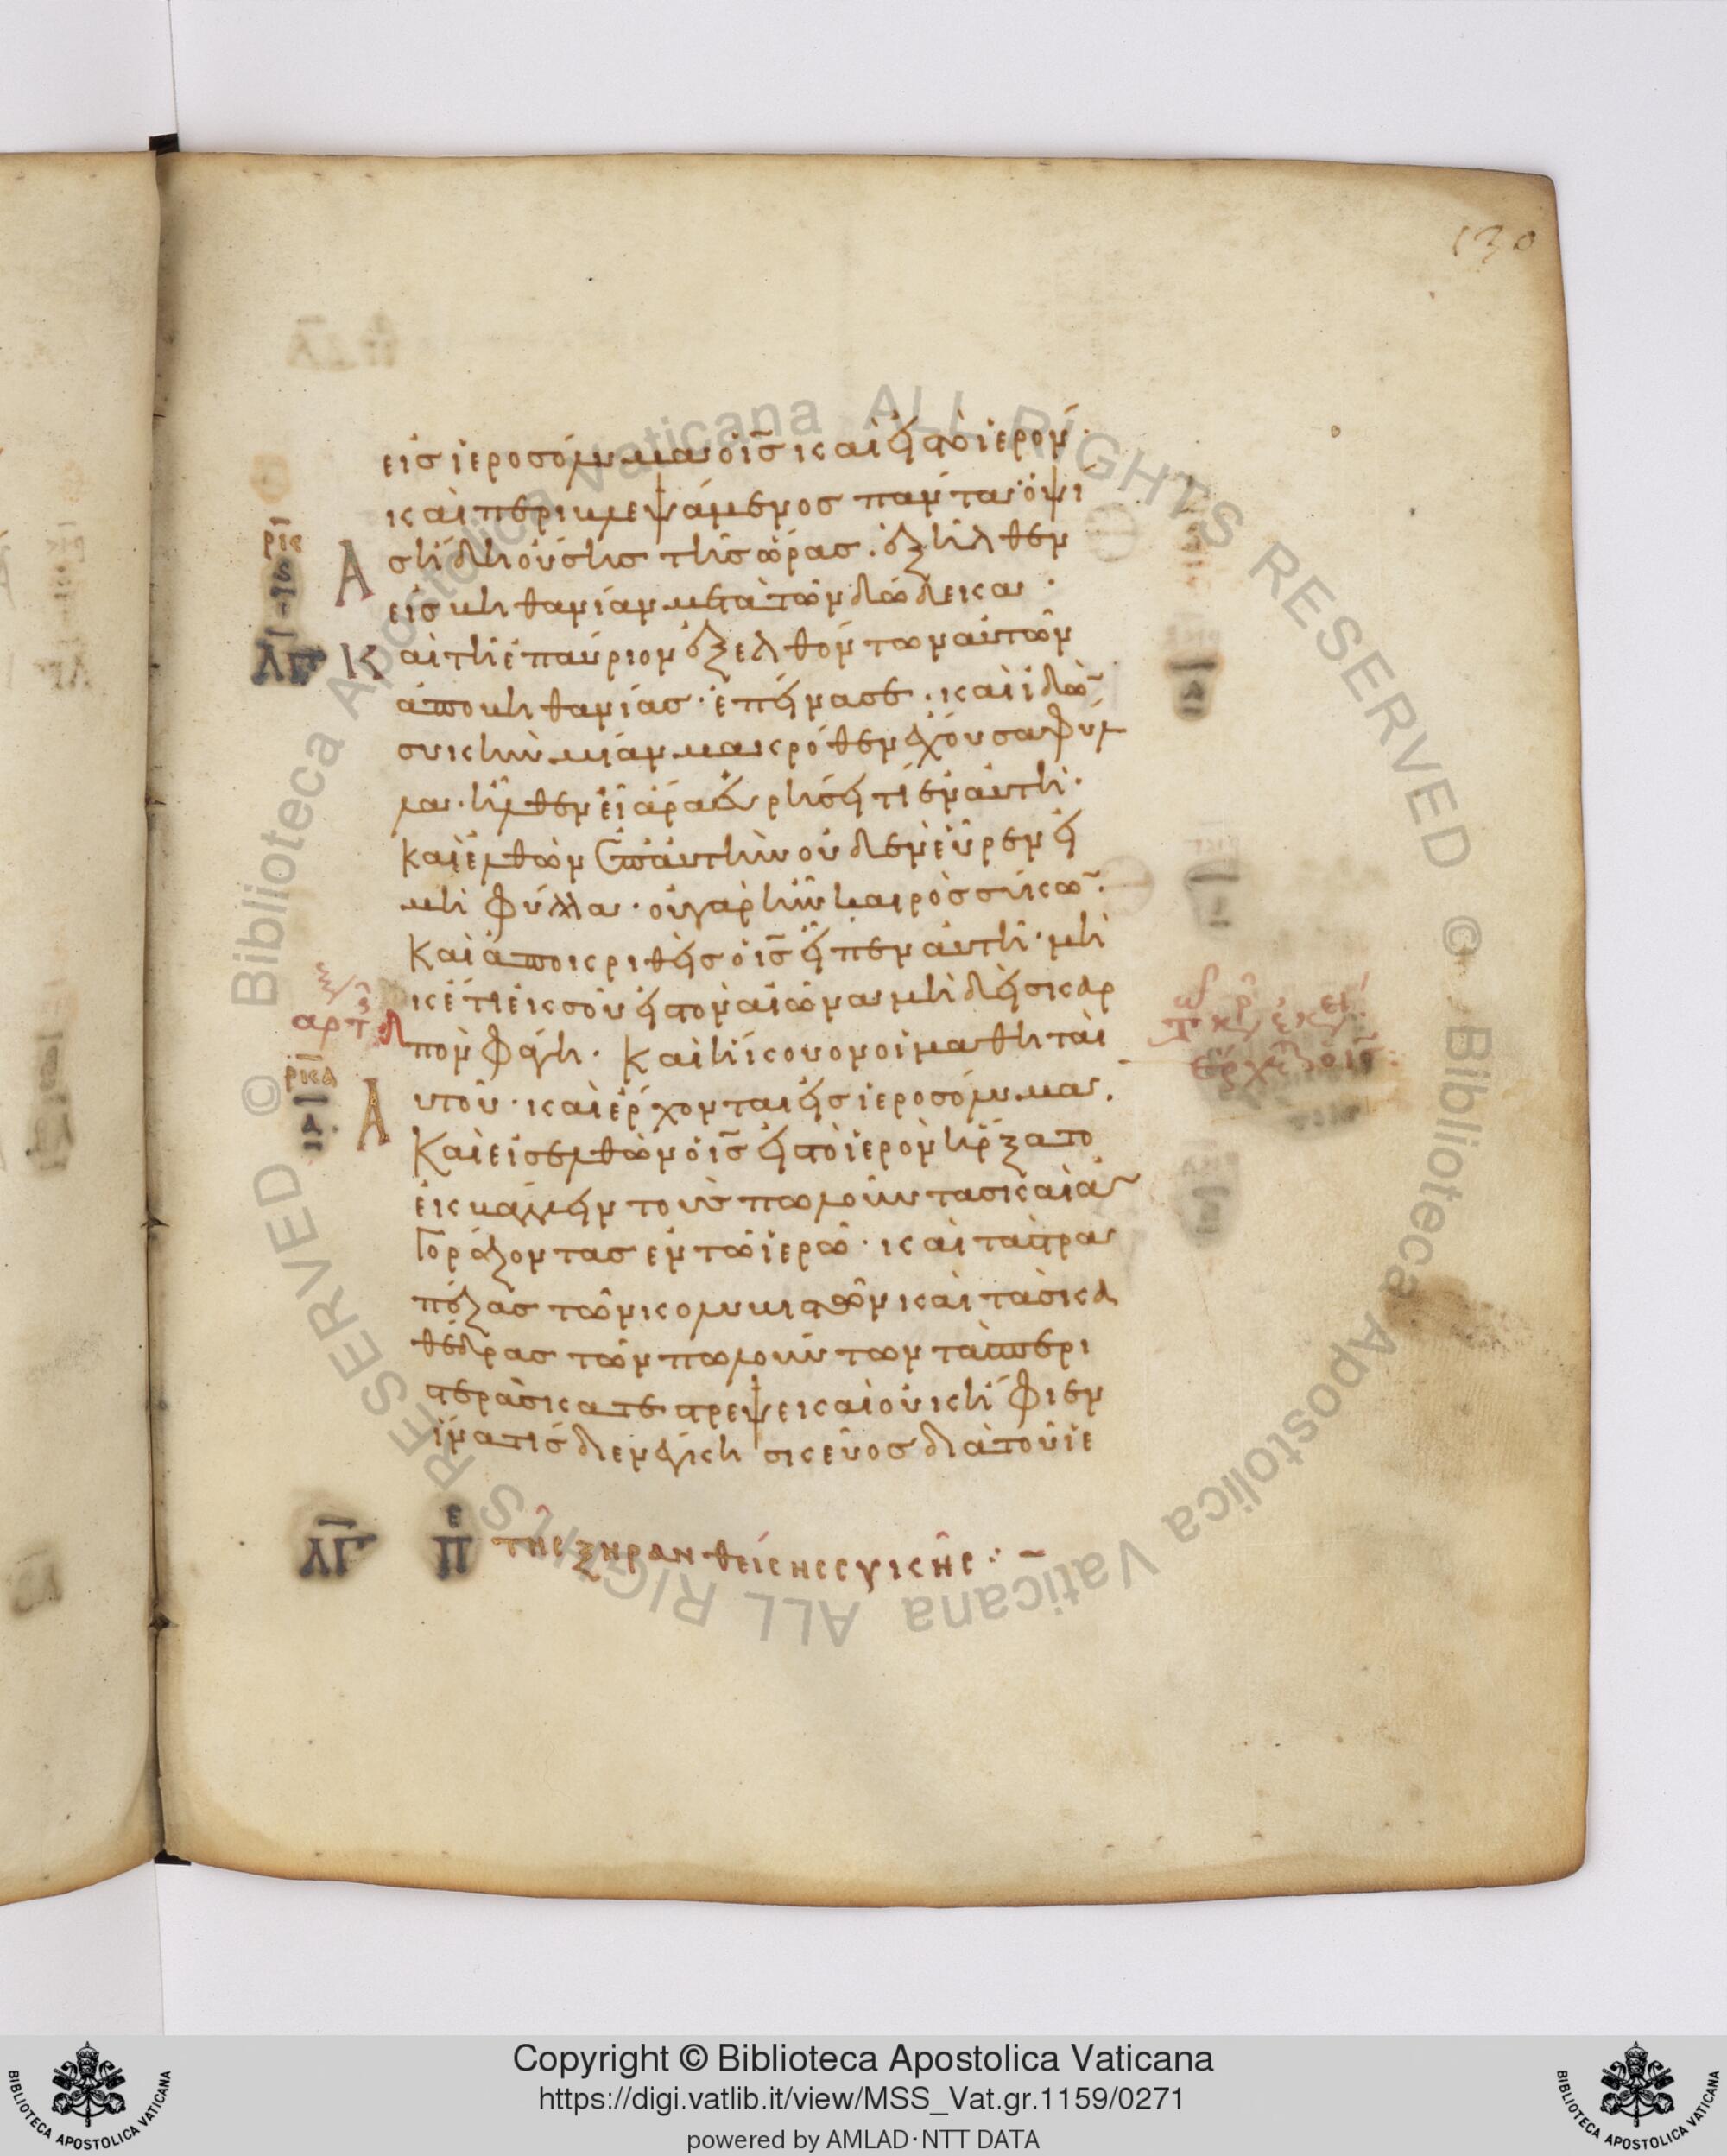 130
εἰσ ἱεροσόλυμα ὁ ἰ̅σ̅ καὶ εἰσ τὸ ἱερόν·
καὶ περιβλεψάμενος πάντα· ὀψί
ασ ἤδη οὔσησ τῆσ ὥρασ· ἐξῆλθεν
εἰσ βηθανίαν μετὰ τῶν δώδεκα·
ΛΓ Καὶ τῆ ἐπαύριον ἐξελθόντων αὐτῶν
ἀπὸ βηθανίασ· ἐπείνασε· καὶ ἰδὼν
συκῆν μίαν μακρόθεν ἔχουσαν φύλ
λα· ἦλθεν εἰ ἄρα εὑρήσει τί ἐν αὐτῆ·
καὶ ἐλθὼν ἐπ' αὐτὴν οὐδὲν εὗρεν εἰ
μὴ φύλλα· οὐ γὰρ ἦν καιρὸσ σύκων·
Καὶ ἀποκριθεὶσ ὁ ἰ̅σ̅ εἶπεν αὐτῆ· μη
κέτι ἐκ σοῦ εἰσ τὸν αἰῶνα μηδεὶσ καρ
πὸν φάγη· καὶ ἤκουον οἱ μαθηταὶ
αὐτοῦ· καὶ ἔρχονται εἰσ ἱεροσόλυμα·
ρκα
Καὶ εἰσελθὼν ὁ ἰ̅σ̅ εἰσ τὸ ἱερὸν ἤρξατο
ἐκβάλλειν τοὺσ πωλοῦντασ καὶ ἀ
γοράζοντασ ἐν τῶ ἱερῶ· καὶ τὰσ τρα
πέζασ τῶν κολλυβιστῶν καὶ τὰσ κα
θέδρασ τῶν πωλούντων τὰσ περι
στερὰσ κατέστρεψε καὶ οὐκ ἤφιεν
ἵνα τίσ διενέγκη σκεῦοσ διὰ τοῦ ἱε
ΛΓ πε τῆς ξηρανθείσης συκῆς
Copyright © Biblioteca Apostolica Vaticana
https://digi.vatlib.it/view/MSS_Vat.gr.1159/0271
powered by AMLAD·NTT DATA
BIBLIOTECA APOSTOLICA VATICANA
BIBLIOTECA APOSTOLICA VATICANA
© Biblioteca Apostolica Vaticana ALL RIGHTS RESERVED © Biblioteca Apostolica Vaticana ALL RIGHTS RESERVED